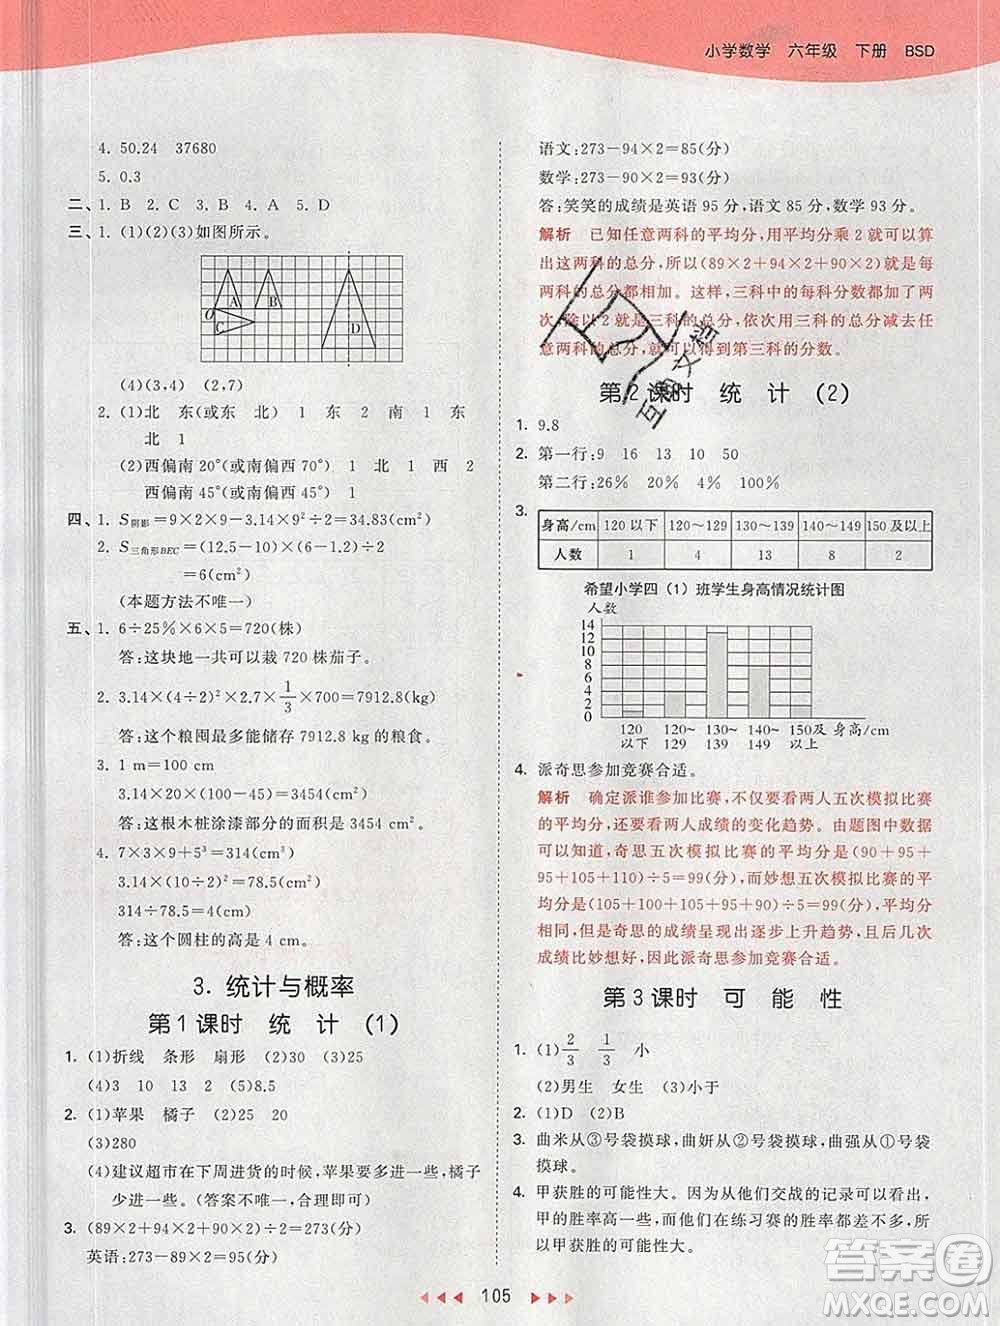 小学数学 六年级 下册 BSD
4. 50.24 37680
5. 0.3
二、1. B 2. C 3. B 4. A 5. D
三、1. (1)(2)(3)如图所示。
A
B
O
C
D
(4)(3,4) (2,7)
2. (1)北 东(或东 北) 1 东 2 南 1 东
北 1
(2)西偏南20°(或南偏西70°) 1 北 1 西 2
西偏南45°(或南偏西45°) 1
四、1. S阴影=9×2×9-3.14×9²÷2=34.83(cm²)
2. S三角形BEC=(12.5-10)×(12.5-10)÷2
=6(cm²)
(本题方法不唯一)
五、1. 6÷25%×6×5=720(株)
答:这块地一共可以栽 720 株茄子。
2. 3.14×(4÷2)²×2.7×1/3×700=7912.8(kg)
答:这个粮囤最多能储存 7912.8 kg 的粮食。
3. 1 m=100 cm
3.14×20÷2×100+3.14×(20÷2)²=3454(cm²)
答:这根木桩涂漆部分的面积是 3454 cm²。
4. 7×3×9+5³=314(cm³)
3.14×(10÷2)²=78.5(cm²)
314÷78.5=4(cm)
答:这个圆柱的高是 4 cm。
3. 统计与概率
第1课时 统 计 (1)
1. (1)折线 条形 扇形 (2)30 (3)25
(4)3 10 13 2 (5)8.5
2. (1)苹果 橘子 (2)25 20
(3)280
(4)建议超市在下周进货的时候,苹果要多进一些,橘子
少进一些。(答案不唯一,合理即可)
3. (89×2+94×2+90×2)÷2=273(分)
英语:273-89×2=95(分)
语文:273-94×2=85(分)
数学:273-90×2=93(分)
答:笑笑的成绩是英语 95 分,语文 85 分,数学 93 分。
解析 已知任意两科的平均分,用平均分乘 2 就可以算
出这两科的总分,所以(89×2+94×2+90×2)就是每
两科的总分都相加。这样,三科中的每科分数都加了两
次,除以 2 就是三科的总分,依次用三科的总分减去任
意两科的总分,就可以得到第三科的分数。
第2课时 统 计 (2)
1. 9.8
2. 第一行:9 16 13 10 50
第二行:26% 20% 4% 100%
3.
身高/cm 120 以下 120~129 130~139 140~149 150 及以上
人数 1 4 13 8 2
希望小学四(1)班学生身高情况统计图
人数
14
12
10
8
6
4
2
0
120 120~ 130~ 140~ 150及 身高/cm
以下 129 139 149 以上
4. 派奇思参加竞赛合适。
解析 确定派谁参加比赛,不仅要看两人五次模拟比赛
的平均分,还要看两人成绩的变化趋势。由题图中数据
可以知道,奇思五次模拟比赛的平均分是(90+95+
95+105+110)÷5=99(分),而妙想五次模拟比赛的平
均分是(105+100+105+95+90)÷5=99(分),平均分
相同,但奇思的成绩呈现出逐步上升趋势,成绩发展情
况比妙想好。因此派奇思参加竞赛合适。
第3课时 可 能 性
1. (1)2/3 1/3 小
(2)男生 女生 (3)小于
2. (1)D (2)B
3. 曲米从③号袋摸球,曲奸从②号袋摸球,曲强从①号袋
摸球。
4. 甲获胜的可能性大。因为从他们交战的记录可以看出,
甲的胜率高一些,而他们在练习赛的胜率都差不多,所
以甲获胜的可能性大。
105
答案圈
MXQE.COM